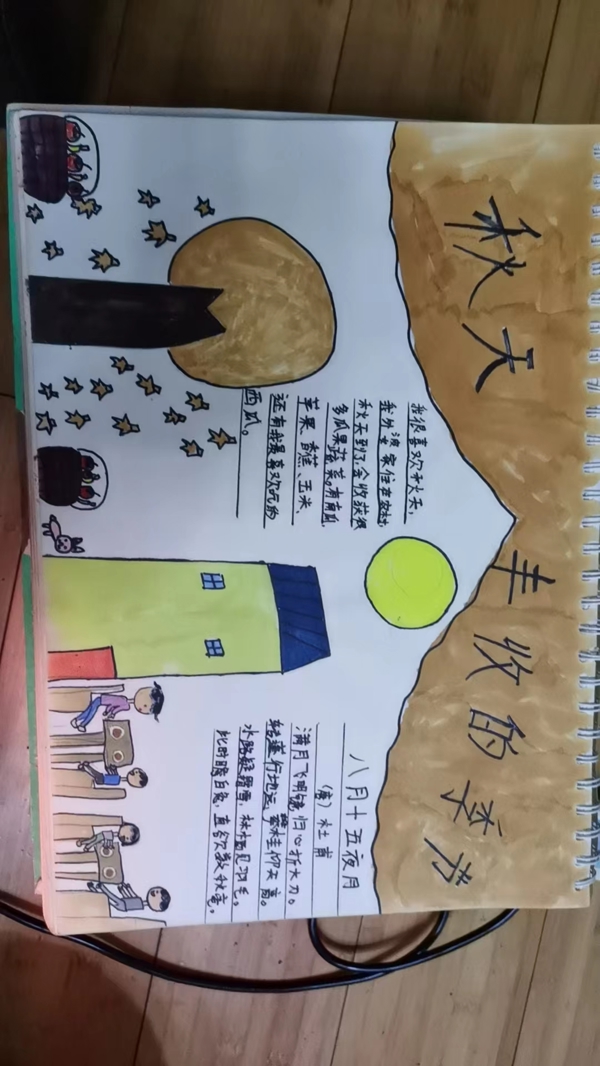 秋天 丰收的季节
我很喜欢秋天，
我外婆家住在农村，
秋天到了，会收获很
多瓜果蔬菜。有南瓜、
苹果、香蕉、玉米、
还有我最喜欢吃的
西瓜。
八月十五夜月
（唐）杜甫
满月飞明镜，归心折大刀。
转蓬行地远，攀桂仰天高。
水路疑霜雪，林栖见羽毛。
此时瞻白兔，直欲数秋毫。